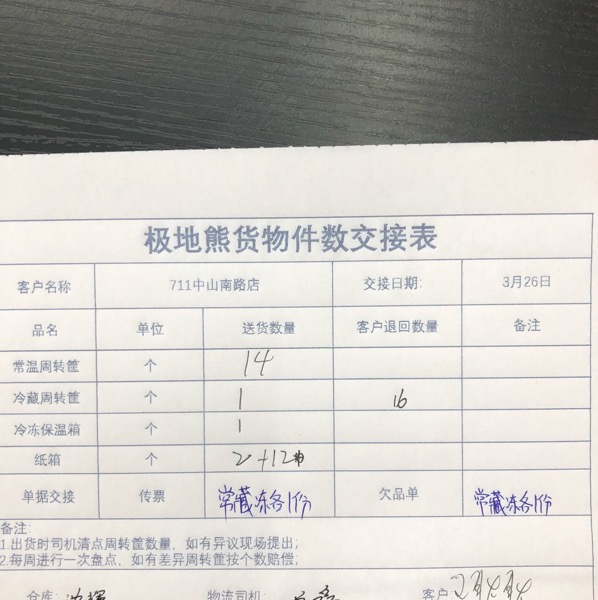 极地熊货物件数交接表
客户名称 711中山南路店 交接日期: 3月26日
品名 单位 送货数量 客户退回数量 备注
常温周转筐 个 14
冷藏周转筐 个 1 16
冷冻保温箱 个 1
纸箱 个 2+12
单据交接 传票 常藏冻各1份 欠品单 常藏冻各1份
备注:
1.出货时司机清点周转筐数量，如有异议现场提出;
2.每周进行一次盘点，如有差异周转筐按个数赔偿;
仓库: 物流司机: 客户: